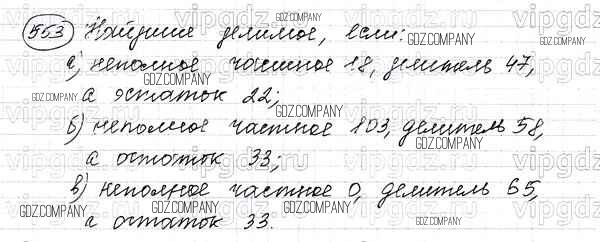 553 Найдите делимое, если:
а) неполное частное 18, делитель 47,
а остаток 22;
б) неполное частное 103, делитель 58,
а остаток 33;
в) неполное частное 0, делитель 65,
а остаток 33.